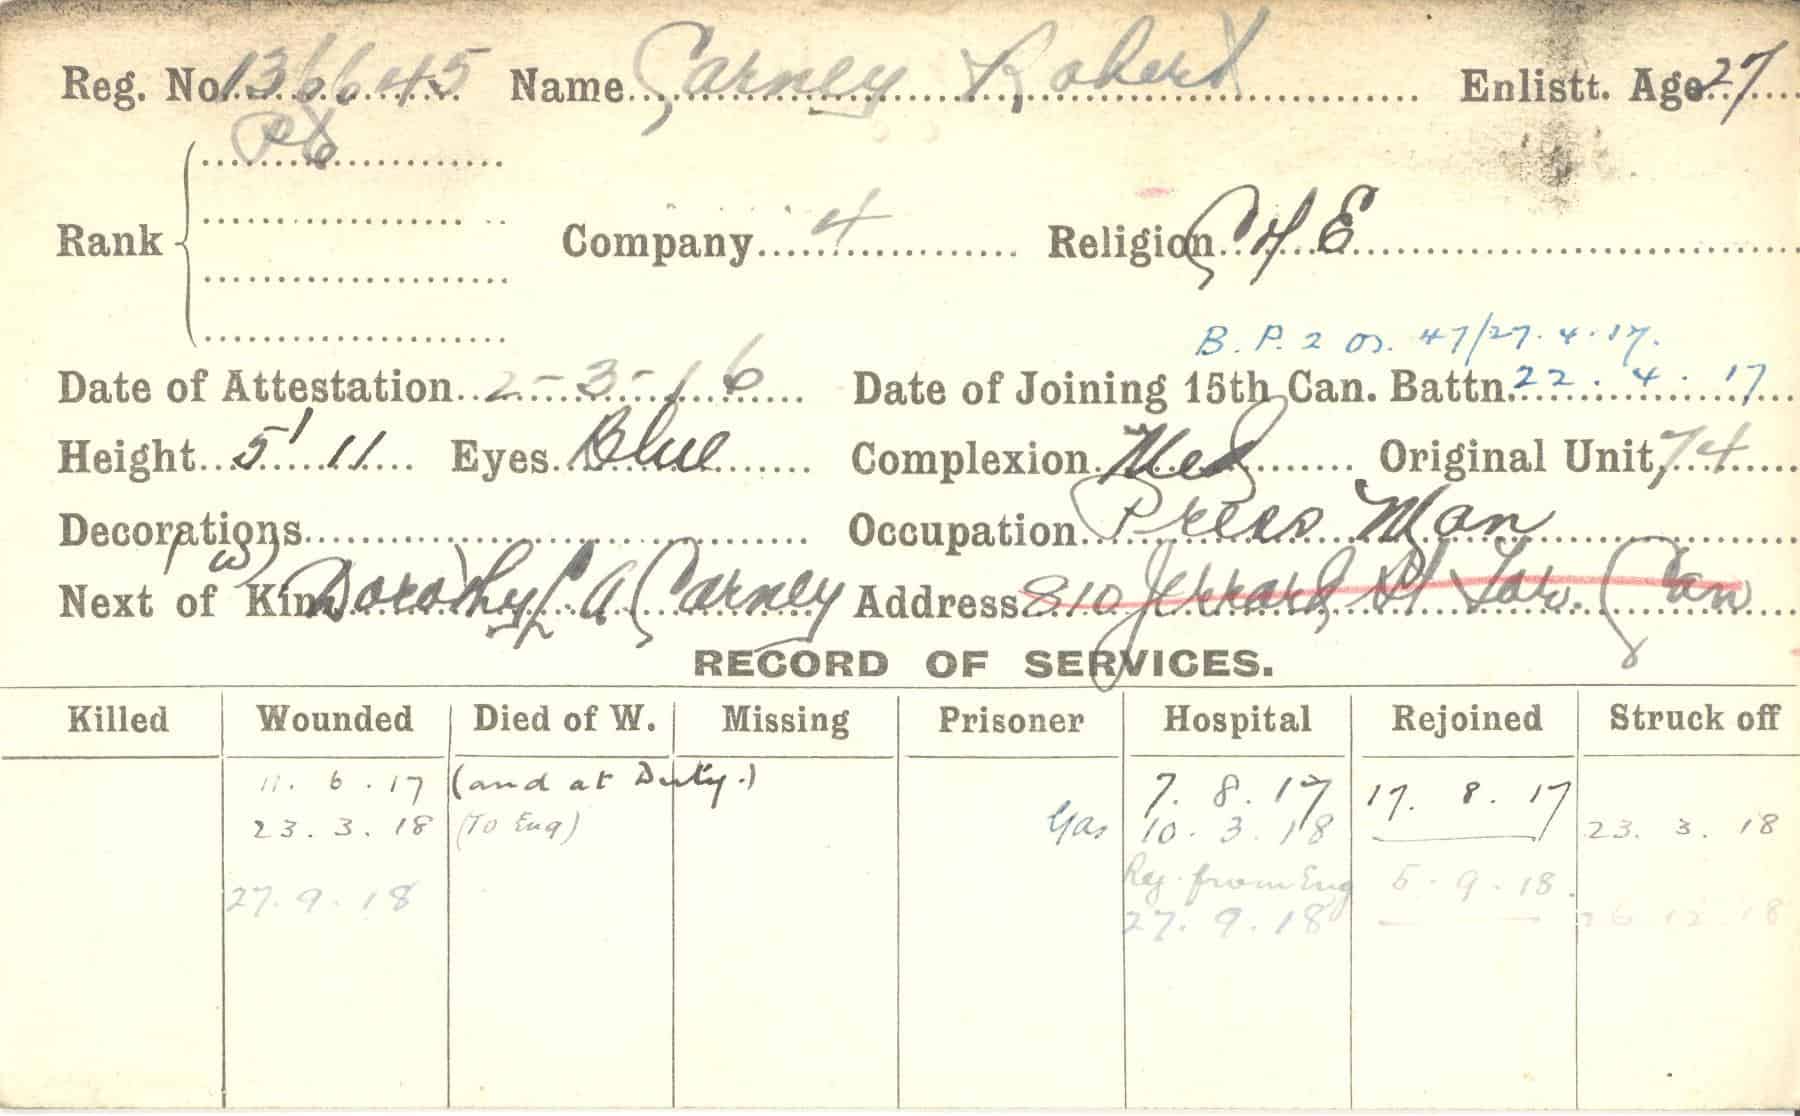 Reg. No. 136645 Name Carney Robert Enlistt. Age 27
Pte
Rank Company 4 Religion C of E
B. P. 2 Or. 47/27.4.17.
Date of Attestation 2-3-16 Date of Joining 15th Can. Battn. 22.4.17
Height 5' 11 Eyes Blue Complexion Med Original Unit 74
Decorations Occupation Press Man
(W)
Next of Kin Dorothy A Carney Address 810 Jerrard St Tor. Can
RECORD OF SERVICES.
Killed Wounded Died of W. Missing Prisoner Hospital Rejoined Struck off
11. 6. 17 (and at Duty.) 7. 8. 17 17. 8. 17
23. 3. 18 (To Eng) Gas 10. 3. 18 23. 3. 18
Rej. from Eng 5. 9. 18.
27. 9. 18 27. 9. 18 26 12 18